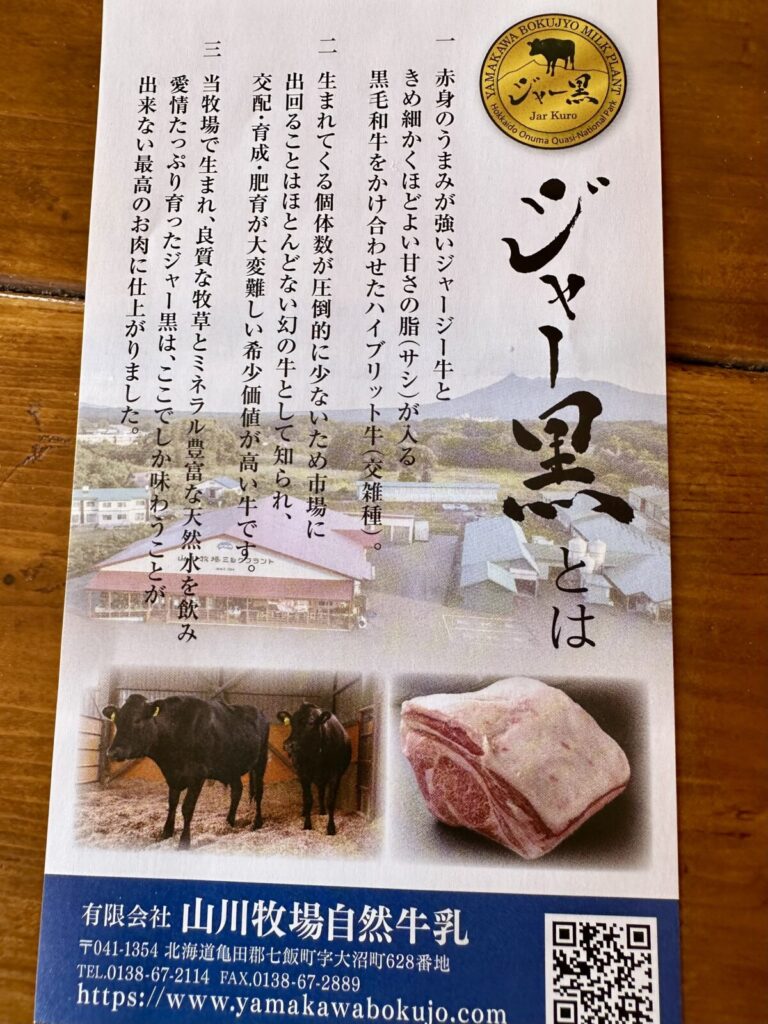 YAMAKAWA BOKUJYO MILK PLANT
ジャー黒
Jar Kuro
Hokkaido Onuma Quasi-National Park
ジャー黒とは
一 赤身のうまみが強いジャージー牛と
きめ細かくほどよい甘さの脂(サシ)が入る
黒毛和牛をかけ合わせたハイブリット牛(交雑種)。
二 生まれてくる個体数が圧倒的に少ないため市場に
出回ることはほとんどない幻の牛として知られ、
交配・育成・肥育が大変難しい希少価値が高い牛です。
三 当牧場で生まれ、良質な牧草とミネラル豊富な天然水を飲み
愛情たっぷり育ったジャー黒は、ここでしか味わうことが
出来ない最高のお肉に仕上がりました。
山川牧場ミルクプラント
有限会社 山川牧場自然牛乳
〒041-1354 北海道亀田郡七飯町字大沼町628番地
TEL.0138-67-2114 FAX.0138-67-2889
https://www.yamakawabokujo.com